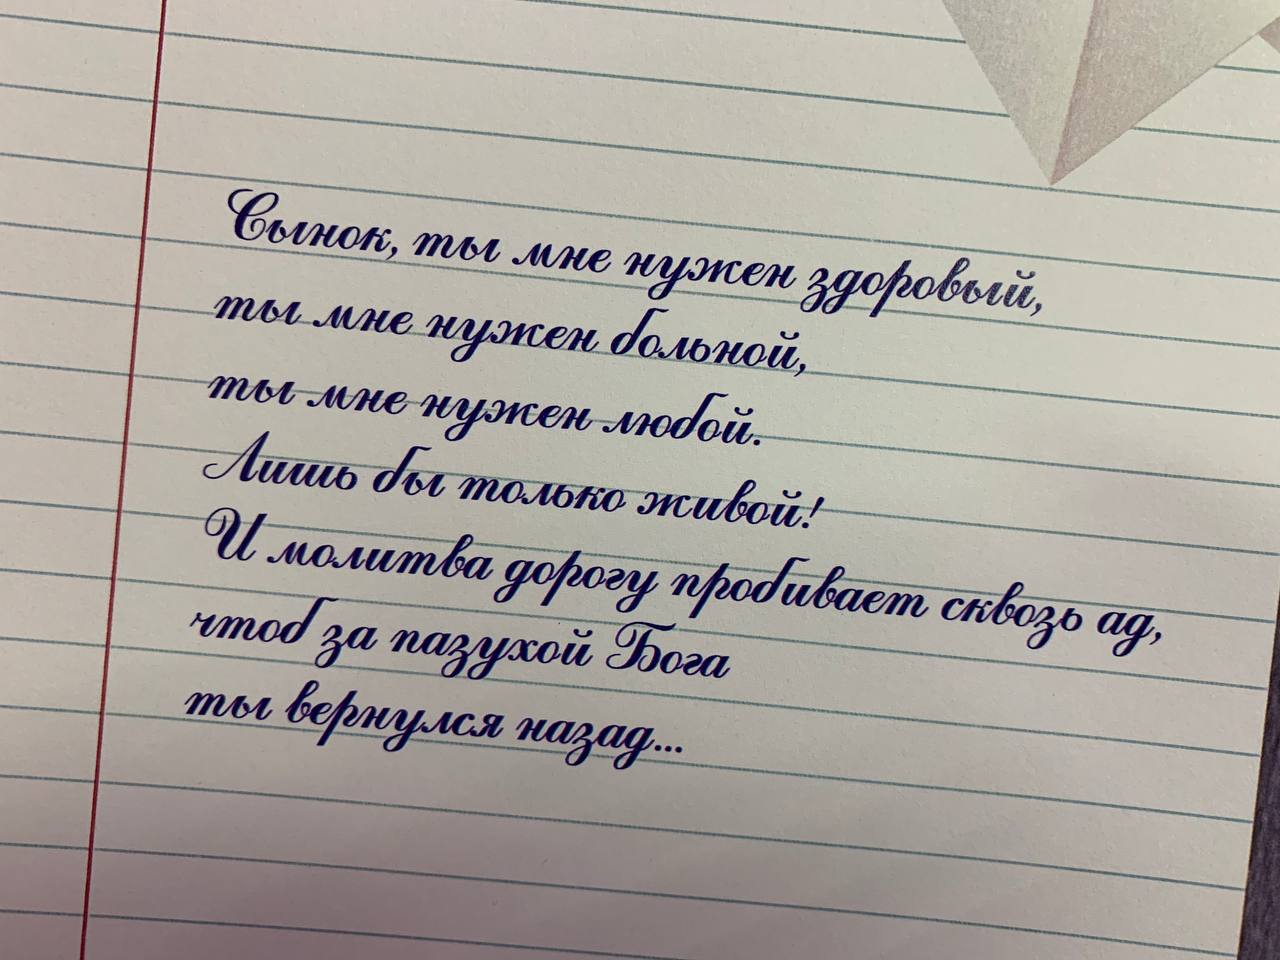 Сынок, ты мне нужен здоровый,
ты мне нужен больной,
ты мне нужен любой.
Лишь бы только живой!
И молитва дорогу пробивает сквозь ад,
чтоб за пазухой Бога
ты вернулся назад...